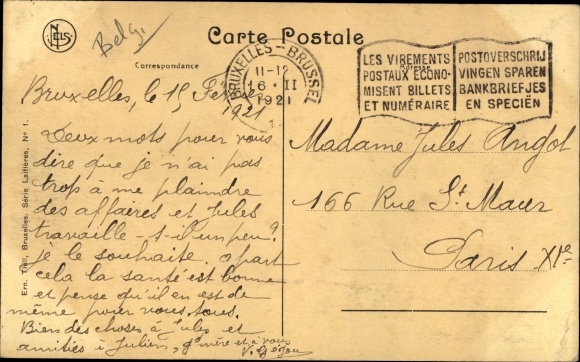 NELS
Belg
Carte Postale
Correspondance
Adresse
BRUXELLES - BRUSSEL
11-12
16 · II
1921
LES VIREMENTS
POSTAUX ÉCONO-
MISENT BILLETS
ET NUMÉRAIRE
POSTOVERSCHRIJ
VINGEN SPAREN
BANKBRIEFJES
EN SPECIËN
Bruxelles, le 15 Février
1921
Deux mots pour vous
dire que je n'ai pas
trop à me plaindre
des affaires et Jules
travaille-t-il un peu?
je le souhaite. à part
cela la santé est bonne
et pense qu'il en est de
même pour vous tous.
Bien des choses à Jules et
amitiés à Julien, g'mère et à vous
Madame Jules Angot
166 Rue St Maur
Paris XIe
Ern. Thill, Bruxelles. Série Laitières, No 1.